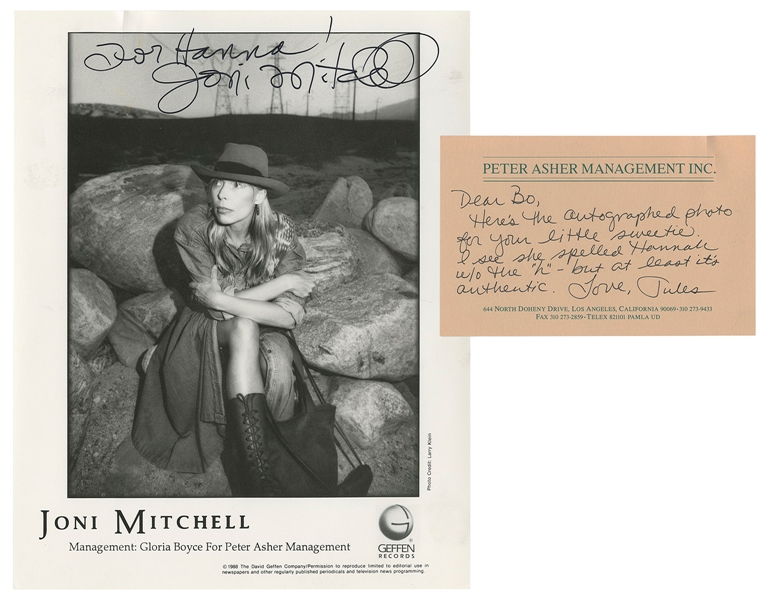 For Hanna!
Joni Mitchell
Photo Credit: Larry Klein
JONI MITCHELL
Management: Gloria Boyce For Peter Asher Management
G
®
GEFFEN
RECORDS
©1988 The David Geffen Company/Permission to reproduce limited to editorial use in
newspapers and other regularly published periodicals and television news programming.
PETER ASHER MANAGEMENT INC.
Dear Bo,
Here's the autographed photo
for your little sweetie.
I see she spelled Hannah
w/o the "h" - but at least it's
authentic. Love, Jules
644 NORTH DOHENY DRIVE, LOS ANGELES, CALIFORNIA 90069 • 310 273-9433
FAX 310 273-2859 • TELEX 821101 PAMLA UD